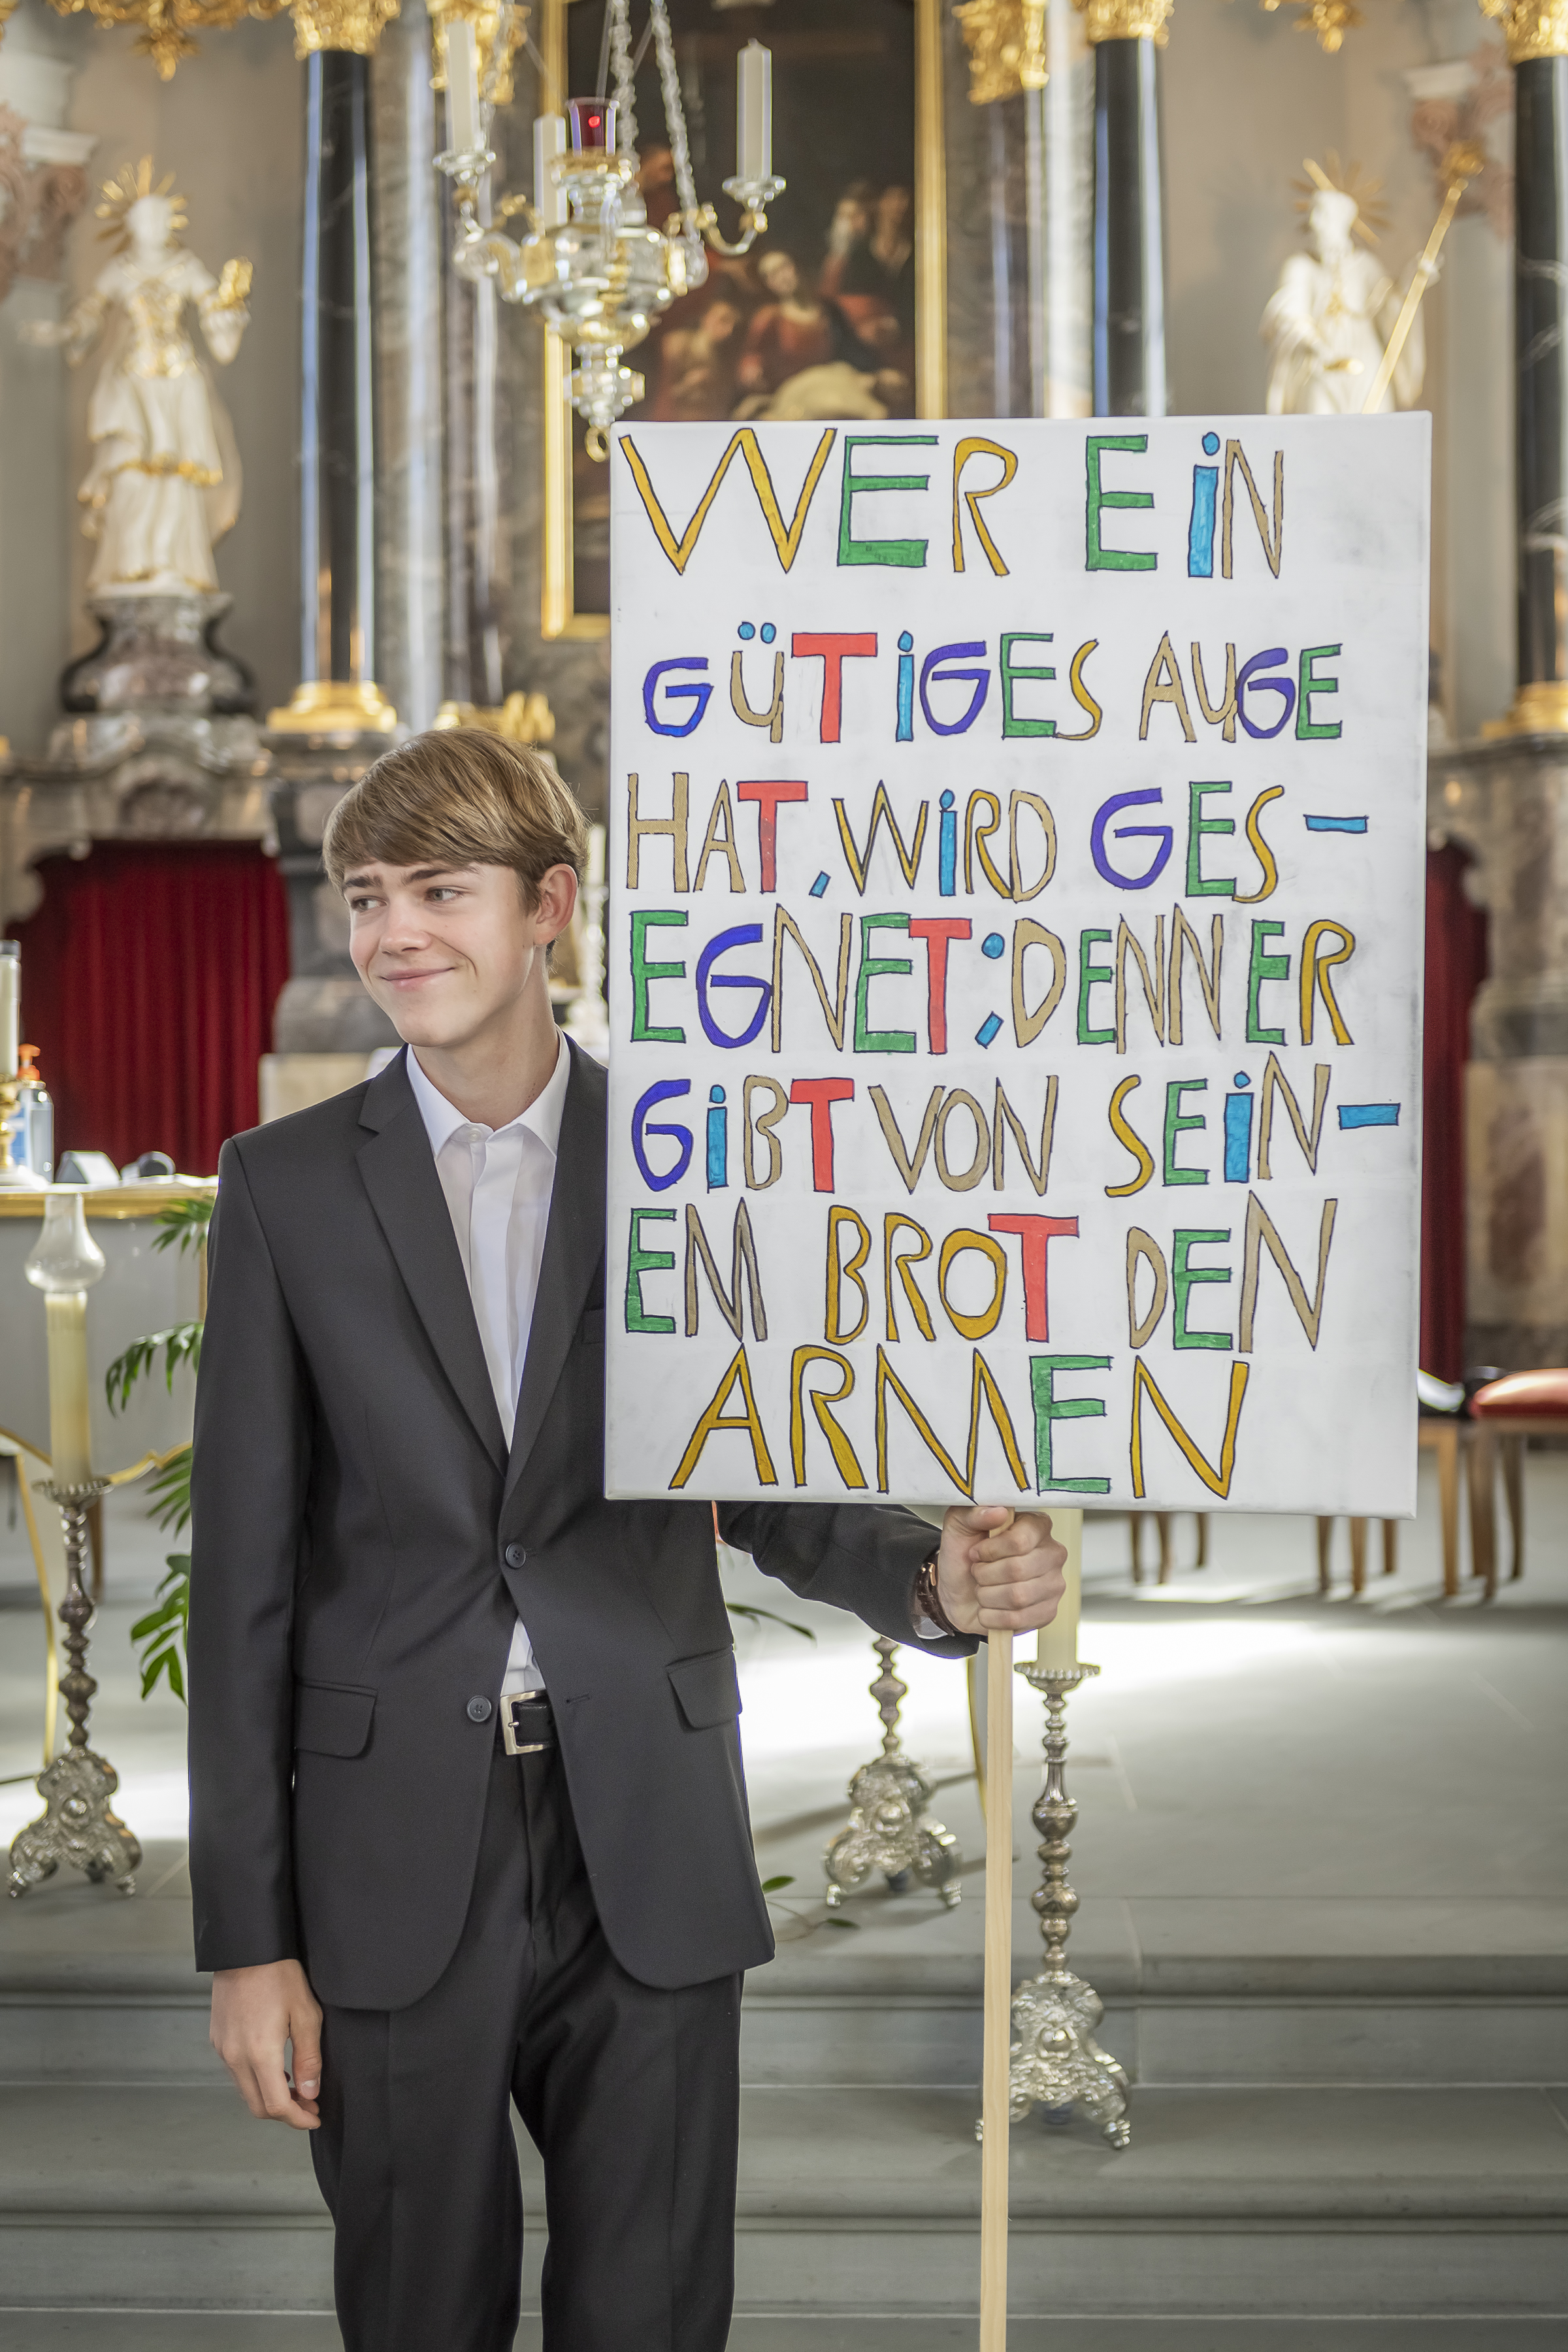 WER EiN
GüTiGES AUGE
HAT, WiRD GES-
EGNET; DENN ER
GiBT VON SEiN-
EM BROT DEN
ARMEN